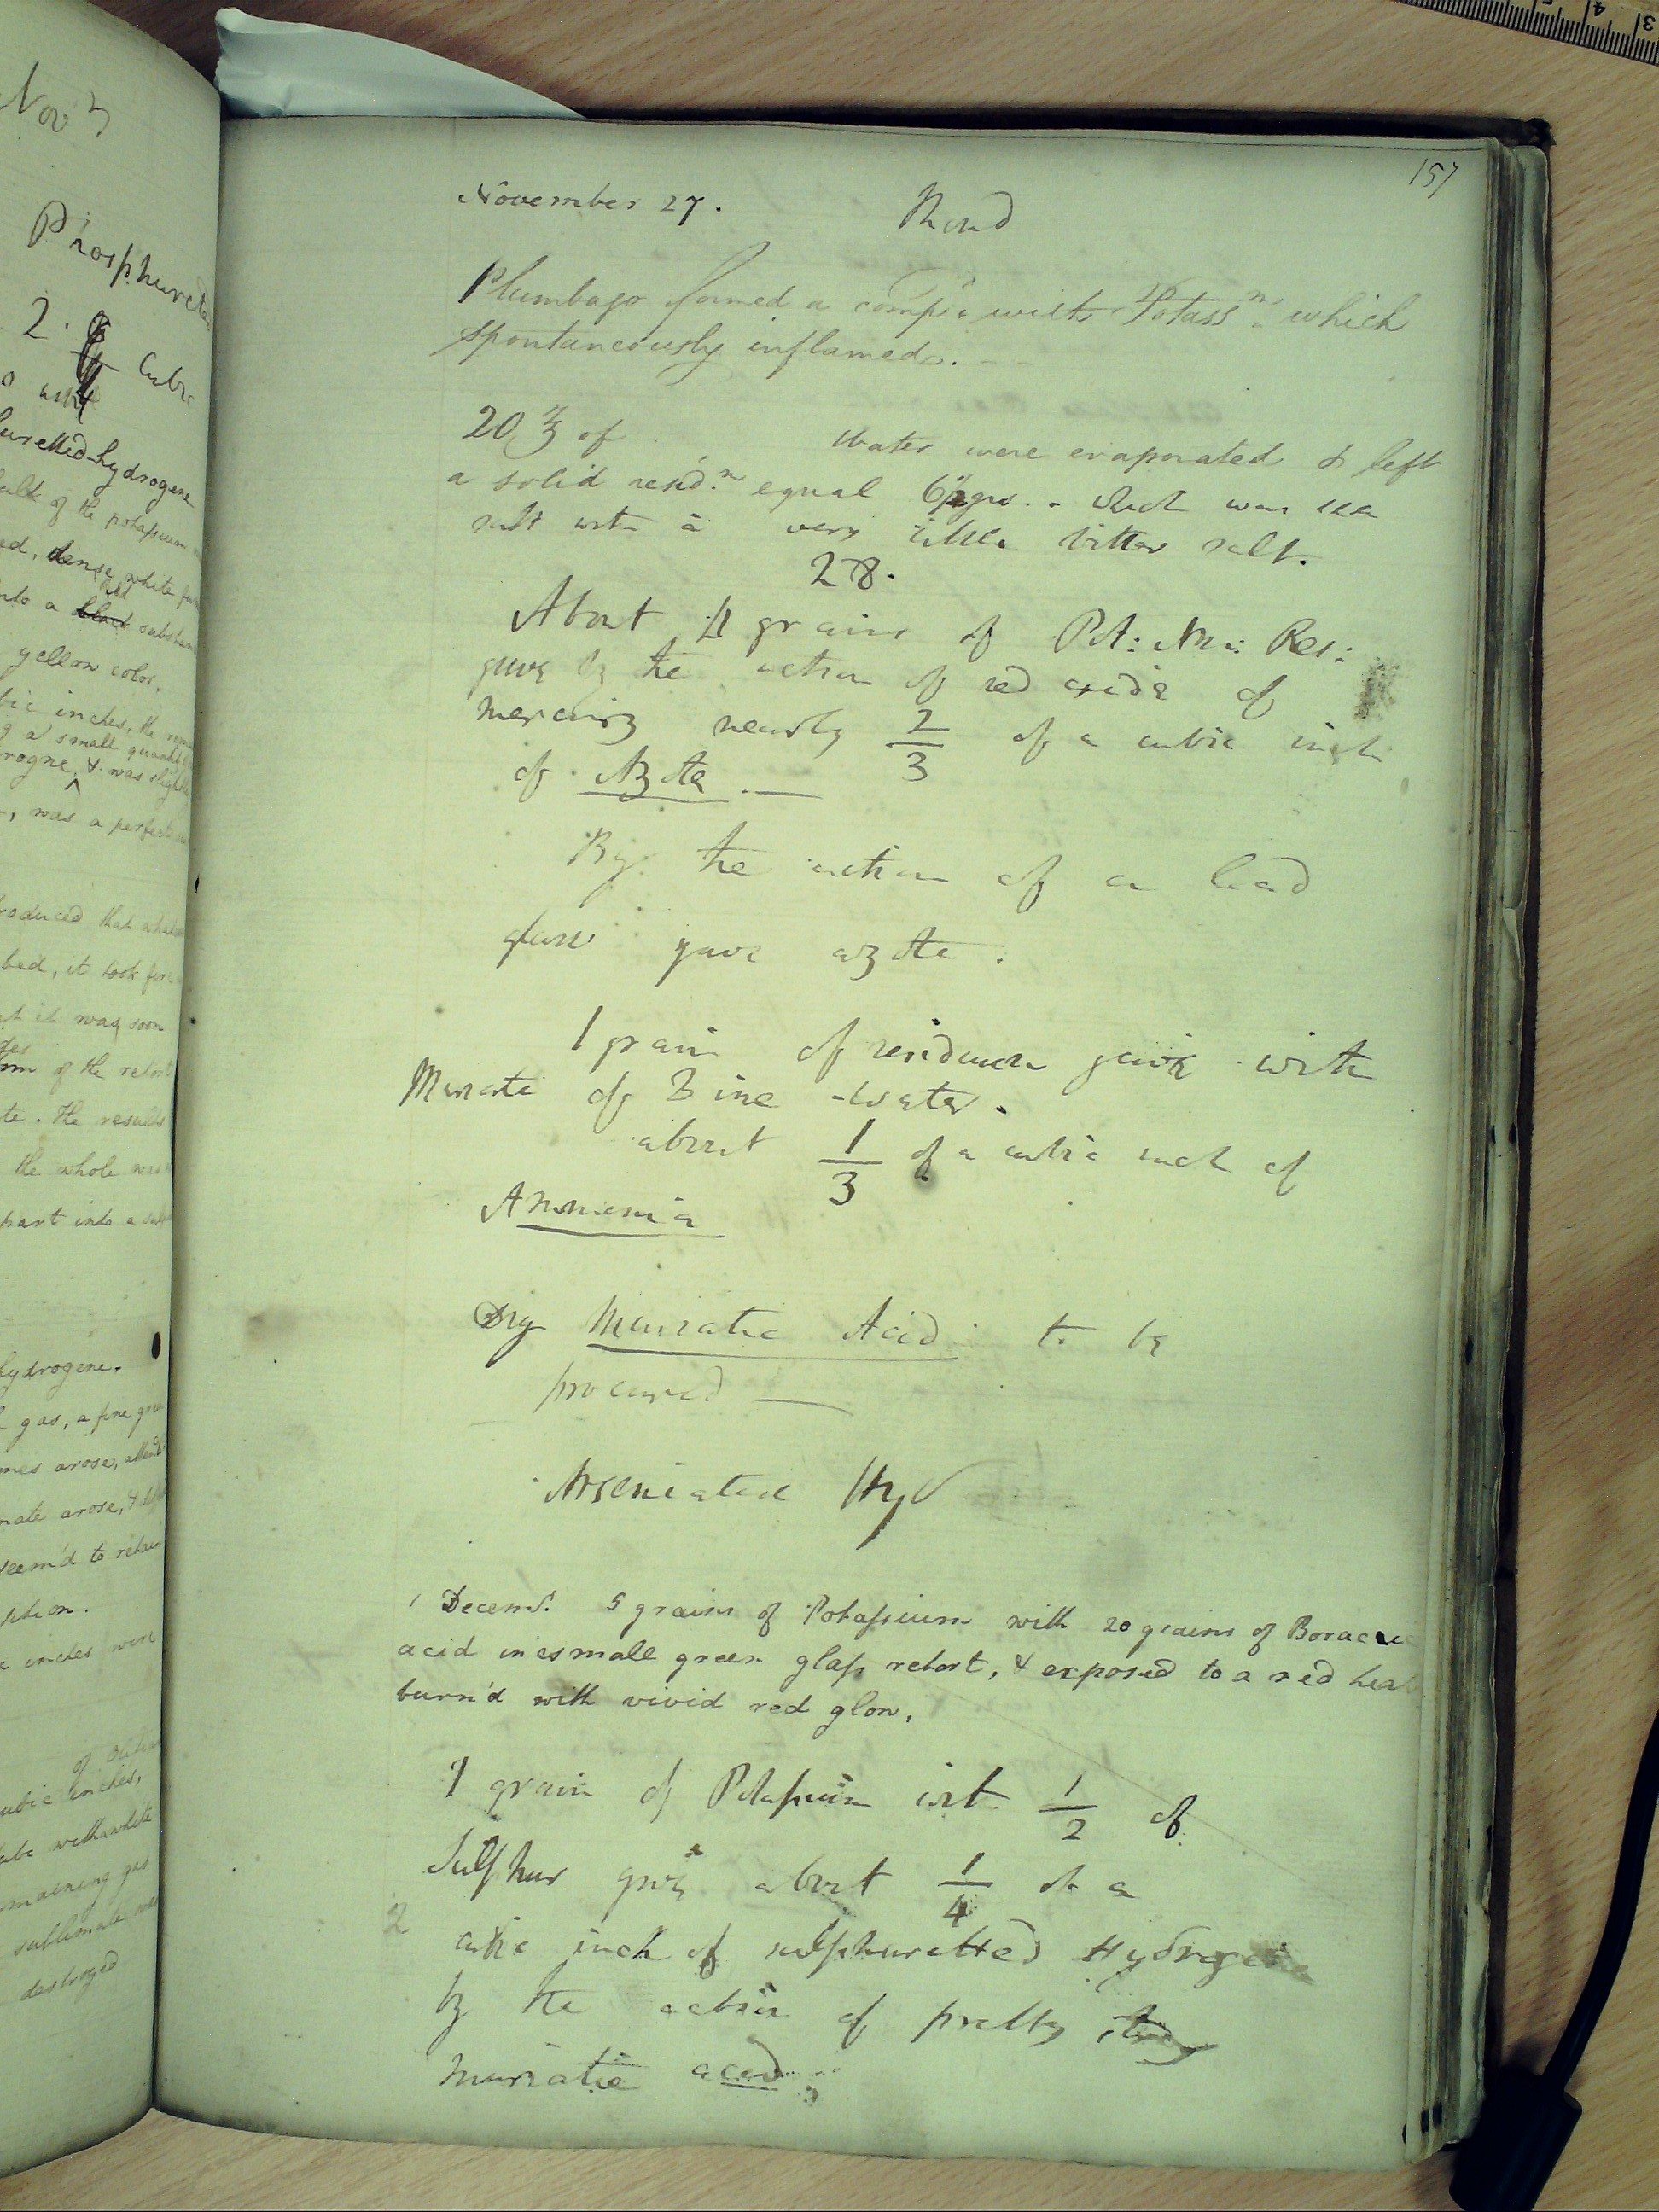 Nov 3
Phosphurett
2. Cubic
luretted-hydrogene
bulk of the potassium
ed, dense white fu
nto a black red substan
yellow color.
bic inches, the rem
g a small quantity
rogne, & was slight
, was a perfect
roduced that whate
bed, it took fire
at it was soon
of the retort
te. The results
the whole was
part into a
hydrogene.
gas, a fine gree
mes arose, attend
mate arose, &
seem'd to retain
ption.
c inches were
of
ubic inches,
ube with white
maining gas
sublimate was
destroyed
157
November 27. Mond
Plumbago formed a comp.d with Potass.m which
spontaneously inflamed.
20 ℥ of water were evaporated & left
a solid resid.m equal grs. - which was sea
salt with a very little bitter salt.
28.
About grains of Pot: Am: Res:
gave by the action of red oxide of
mercury nearly 2/3 of a cubic inch
of Azote. —
By the action of a lead
glass gave azote.
1 grain of residuum gave with
Muriate of Zinc - water.
about 1/3 of a cubic inch of
Ammonia
Dry Muriatic Acid to be
procured —
Arseniated Hyd
1 Decem.r 5 grains of Potassium with 20 grains of Boracic
acid in a small green glass retort, & exposed to a red heat
burn'd with vivid red glow.
1 grain of Potassium with 1/2 of
Sulphur gave about 1/4 of a
2 cubic inch of sulphuretted Hydrogen
by the action of pretty strong
muriatic acid;